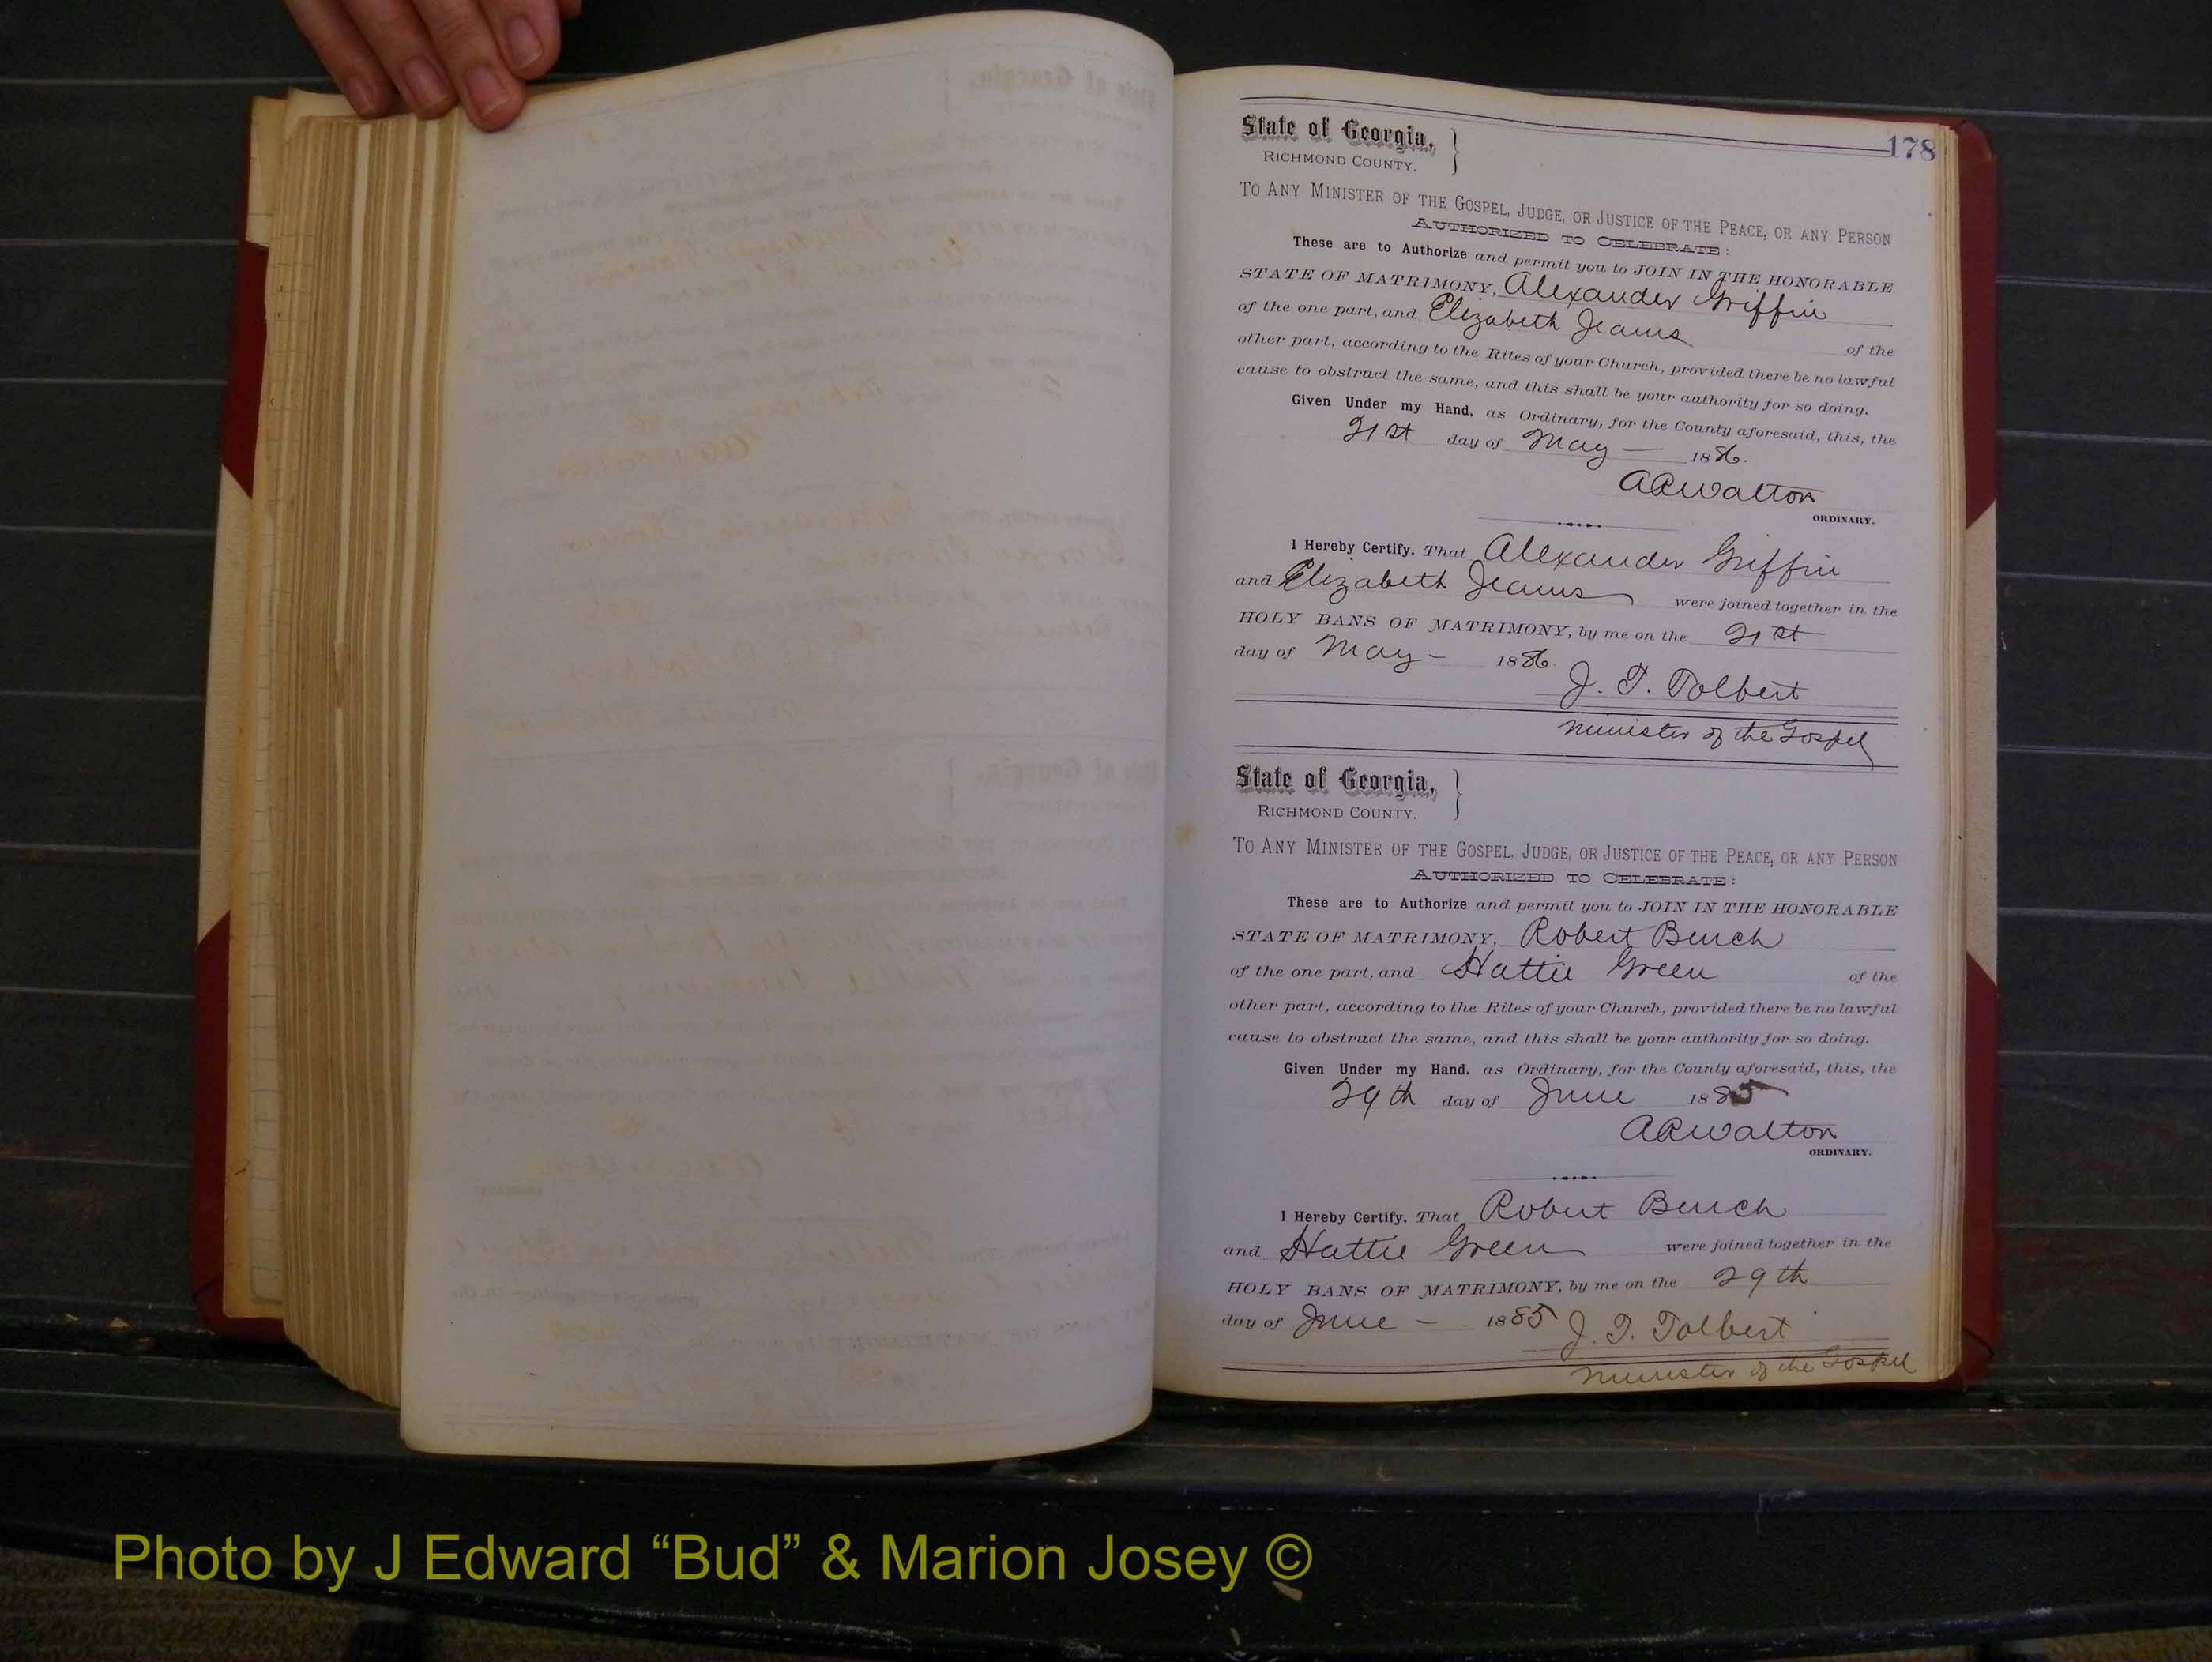 178
State of Georgia,
RICHMOND COUNTY.
TO ANY MINISTER OF THE GOSPEL, JUDGE, OR JUSTICE OF THE PEACE, OR ANY PERSON
AUTHORIZED TO CELEBRATE:
These are to Authorize and permit you to JOIN IN THE HONORABLE
STATE OF MATRIMONY, Alexander Griffin
of the one part, and Elizabeth Jeams of the
other part, according to the Rites of your Church, provided there be no lawful
cause to obstruct the same, and this shall be your authority for so doing.
Given Under my Hand, as Ordinary, for the County aforesaid, this, the
21st day of May 1886.
A R Walton
ORDINARY.
I Hereby Certify, That Alexander Griffin
and Elizabeth Jeams were joined together in the
HOLY BANS OF MATRIMONY, by me on the 21st
day of May 1886.
J. T. Tolbert
Minister of the Gospel
State of Georgia,
RICHMOND COUNTY.
TO ANY MINISTER OF THE GOSPEL, JUDGE, OR JUSTICE OF THE PEACE, OR ANY PERSON
AUTHORIZED TO CELEBRATE:
These are to Authorize and permit you to JOIN IN THE HONORABLE
STATE OF MATRIMONY, Robert Bench
of the one part, and Hattie Green of the
other part, according to the Rites of your Church, provided there be no lawful
cause to obstruct the same, and this shall be your authority for so doing.
Given Under my Hand, as Ordinary, for the County aforesaid, this, the
29th day of June 1885
A R Walton
ORDINARY.
I Hereby Certify, That Robert Bench
and Hattie Green were joined together in the
HOLY BANS OF MATRIMONY, by me on the 29th
day of June 1885 J. T. Tolbert
Minister of the Gospel
Photo by J Edward “Bud” & Marion Josey ©